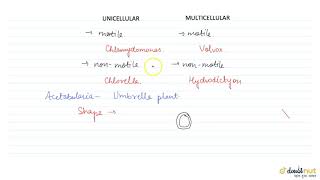 UNICELLULAR MULTICELLULAR
→ motile → motile
Chlamydomonas Volvox
→ non-motile → non-motile
Chlorella Hydrodictyon
Acetabularia - Umbrella plant
Shape →
doubtnut